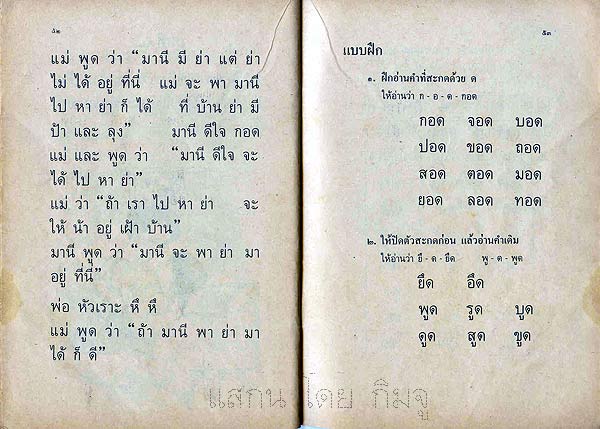 ๕๒
แม่ พูด ว่า “มานี มี ย่า แต่ ย่า
ไม่ ได้ อยู่ ที่นี่ แม่ จะ พา มานี
ไป หา ย่า ก็ ได้ ที่ บ้าน ย่า มี
ป้า และ ลุง” มานี ดีใจ กอด
แม่ และ พูด ว่า “มานี ดีใจ จะ
ได้ ไป หา ย่า”
แม่ ว่า “ถ้า เรา ไป หา ย่า จะ
ให้ น้า อยู่ เฝ้า บ้าน”
มานี พูด ว่า “มานี จะ พา ย่า มา
อยู่ ที่นี่”
พ่อ หัวเราะ หึ หึ
แม่ พูด ว่า “ถ้า มานี พา ย่า มา
ได้ ก็ ดี”
๕๓
แบบฝึก
๑. ฝึกอ่านคำที่สะกดด้วย ด
ให้อ่านว่า ก - อ - ด - กอด
กอด จอด บอด
ปอด ขอด ถอด
สอด ตอด มอด
ยอด ลอด ทอด
๒. ให้ปิดตัวสะกดก่อน แล้วอ่านคำเดิม
ให้อ่านว่า ยึ - ด - ยึด พู - ด - พูด
ยึด อึด
พูด รูด บูด
ดูด สูด ขูด
แสกน โดย กิมจู